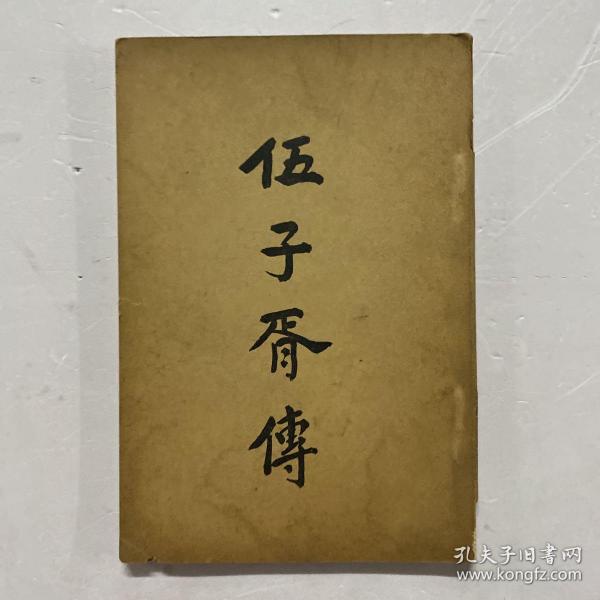 伍子胥傳
孔夫子旧書网
www.kongfz.com